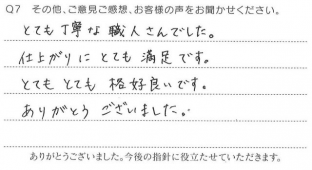 Q7 その他、ご意見ご感想、お客様の声をお聞かせください。
とても丁寧な職人さんでした。
仕上がりにとても満足です。
とてもとても格好良いです。
ありがとうございました。
ありがとうございました。今後の指針に役立たせていただきます。